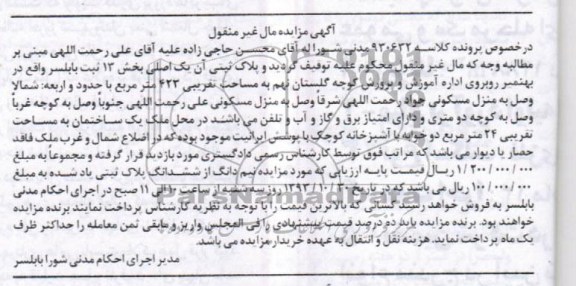 آگهی مزایده مال غیر منقول
درخصوص پرونده کلاسه ۹۳۰۶۳۲ مدنی شورا له آقای محسن حاجی زاده علیه آقای علی رحمت اللهی مبنی بر
مطالبه وجه که مال غیر منقول محکوم علیه توقیف گردید و پلاک ثبتی آن یک اصلی بخش ۱۳ ثبت بابلسر واقع در
بهنمیر روبروی اداره آموزش و پرورش کوچه گلستان نهم به مساحت تقریبی ۴۲۳ متر مربع با حدود و اربعه: شمالا
وصل به منزل مسکونی جواد رحمت اللهی شرقا وصل به منزل مسکونی علی رحمت اللهی جنوبا وصل به کوچه غربا
وصل به کوچه دو متری و دارای امتیاز برق و گاز و آب و تلفن می باشند در محل ملک یک ساختمان به مساحت
تقریبی ۲۴ متر مربع دو خوابه با آشپزخانه کوچک با پوشش ایرانیت موجود بوده که در اضلاع شمال و غرب ملک فاقد
حصار یا دیوار می باشد که مراتب فوق توسط کارشناس رسمی دادگستری مورد بازدید قرار گرفته و مجموعا به مبلغ
۱/۲۰۰/۰۰۰/۰۰۰ ریال قیمت پایه ارزیابی که مورد مزایده نیم دانگ از ششدانگ پلاک ثبتی یاد شده به مبلغ
۱۰۰/۰۰۰/۰۰۰ ریال می باشد که در تاریخ ۱۳۹۳/۱۰/۳۰ روز سه شنبه از ساعت ۱۰ الی ۱۱ صبح در اجرای احکام مدنی
بابلسر به فروش خواهد رسید کسانی که بالاترین قیمت را با توجه به نظریه کارشناس پرداخت نمایند برنده مزایده
خواهند بود. برنده مزایده باید ده درصد قیمت پیشنهادی را فی المجلس واریز و مابقی ثمن معامله را حداکثر ظرف
یک ماه پرداخت نماید. هزینه نقل و انتقال به عهده خریدار مزایده می باشد.
مدیر اجرای احکام مدنی شورا بابلسر